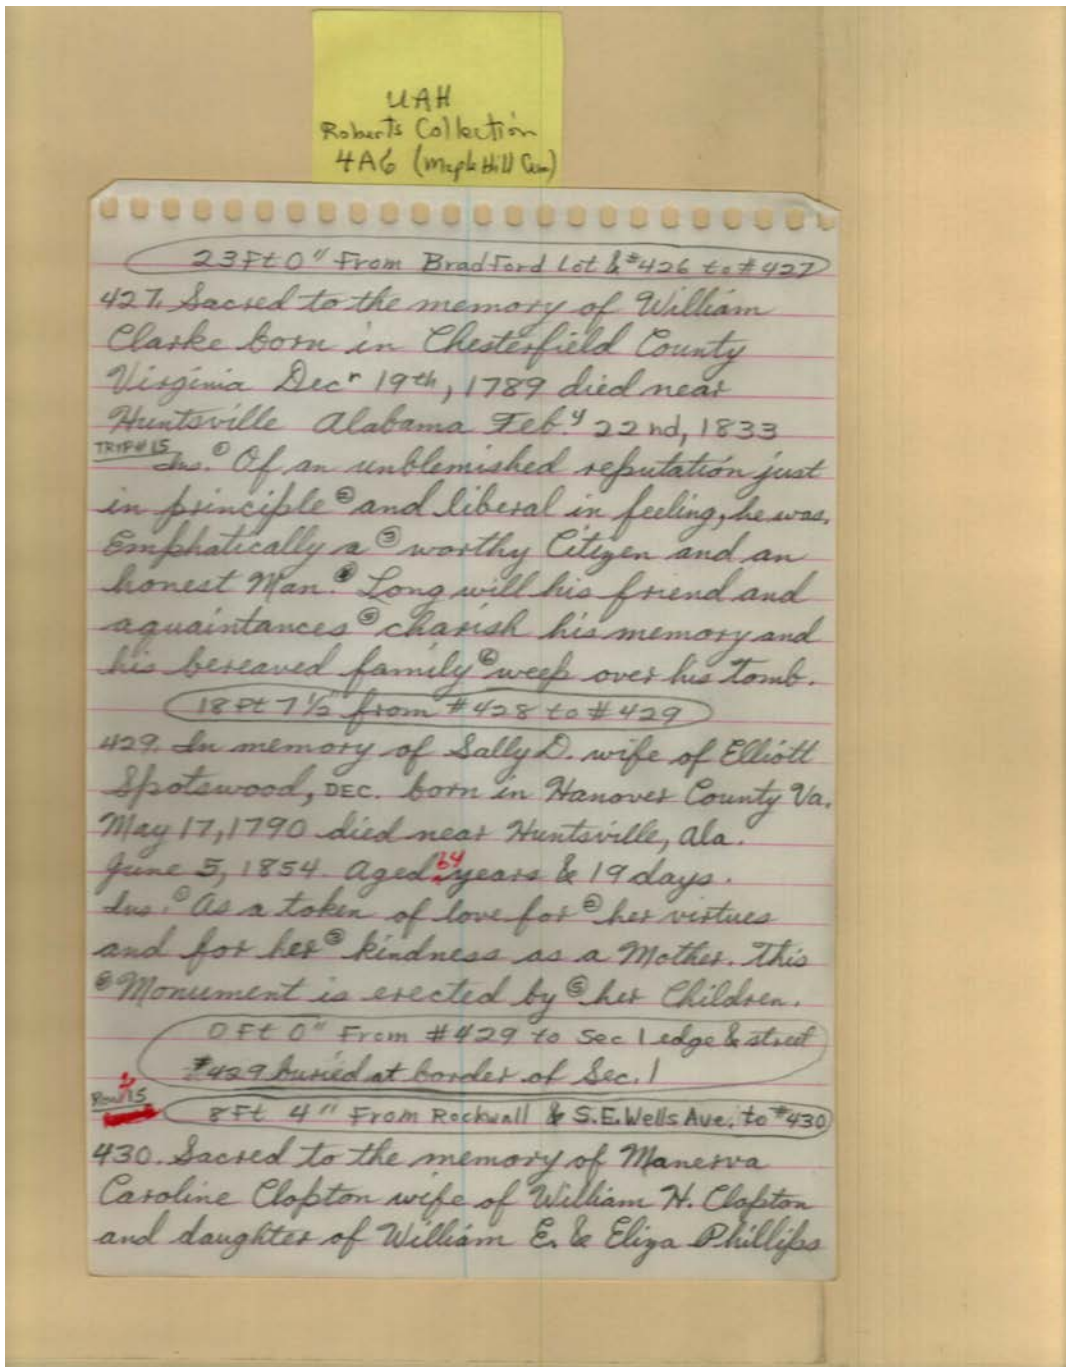 UAH
Roberts Collection
4A6 (Maple Hill Cem)
23Ft 0" From Bradford Lot & #426 to #427
427. Sacred to the memory of William
Clarke born in Chesterfield County
Virginia Decr 19th, 1789 died near
Huntsville Alabama Feb.y 22nd, 1833
TRIP#15
Ins. ① Of an unblemished reputation just
in principle ② and liberal in feeling, he was,
Emphatically a ③ worthy Citizen and an
honest Man. ④ Long will his friend and
aquaintances ⑤ charish his memory and
his bereaved family ⑥ weep over his Tomb.
18Ft 7½" from #428 to #429
429. In memory of Sally D. wife of Elliott
Spotswood, DEC. born in Hanover County Va.
May 17, 1790 died near Huntsville, Ala.
June 5, 1854. Aged 64 years & 19 days.
Ins. ① As a token of love for ② her virtues
and for her ③ kindness as a Mother. This
④ Monument is erected by ⑤ her Children.
0Ft 0" From #429 to Sec 1 edge & street
#429 buried at border of Sec. 1
Row 15
8Ft 4" From Rockwall & S.E. Wells Ave. to #430
430. Sacred to the memory of Manerva
Caroline Clopton wife of William H. Clopton
and daughter of William E. & Eliza Phillips